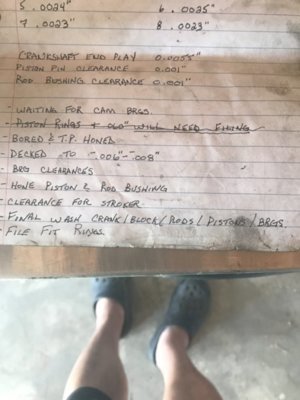 5 .0024" 6 .0025"
7 .0023" 8 .0023"
CRANKSHAFT END PLAY 0.0055"
PISTON PIN CLEARANCE 0.001"
ROD BUSHING CLEARANCE 0.001"
- WAITING FOR CAM BRGS.
- PISTON RINGS + .060" WILL NEED FILING
- BORED & T.P. HONED
- DECKED TO -.006"-.008"
- BRG CLEARANCES
- HONE PISTON & ROD BUSHING
- CLEARANCE FOR STROKER
- FINAL WASH CRANK/BLOCK/RODS/PISTONS/BRGS.
- FILE FIT RINGS.